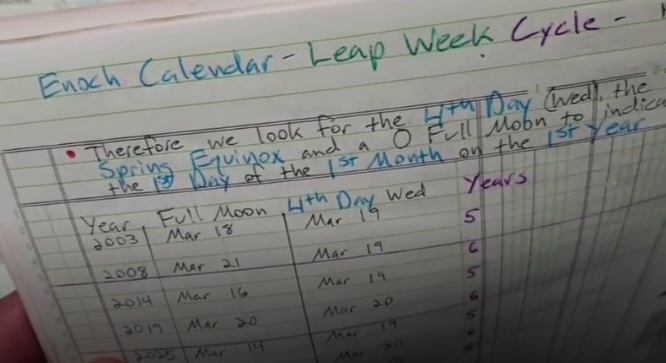 Enoch Calendar - Leap Week Cycle -
• Therefore we look for the 4th Day (Wed), the
Spring Equinox and a O Full Moon to indica
the 1st Day of the 1st Month on the 1st Year
Year Full Moon 4th Day Wed Years
2003 Mar 18 Mar 19 5
2008 Mar 21 Mar 19 6
2014 Mar 16 Mar 19 5
2019 Mar 20 Mar 20 6
2025 Mar 14 Mar 19
Mar 20